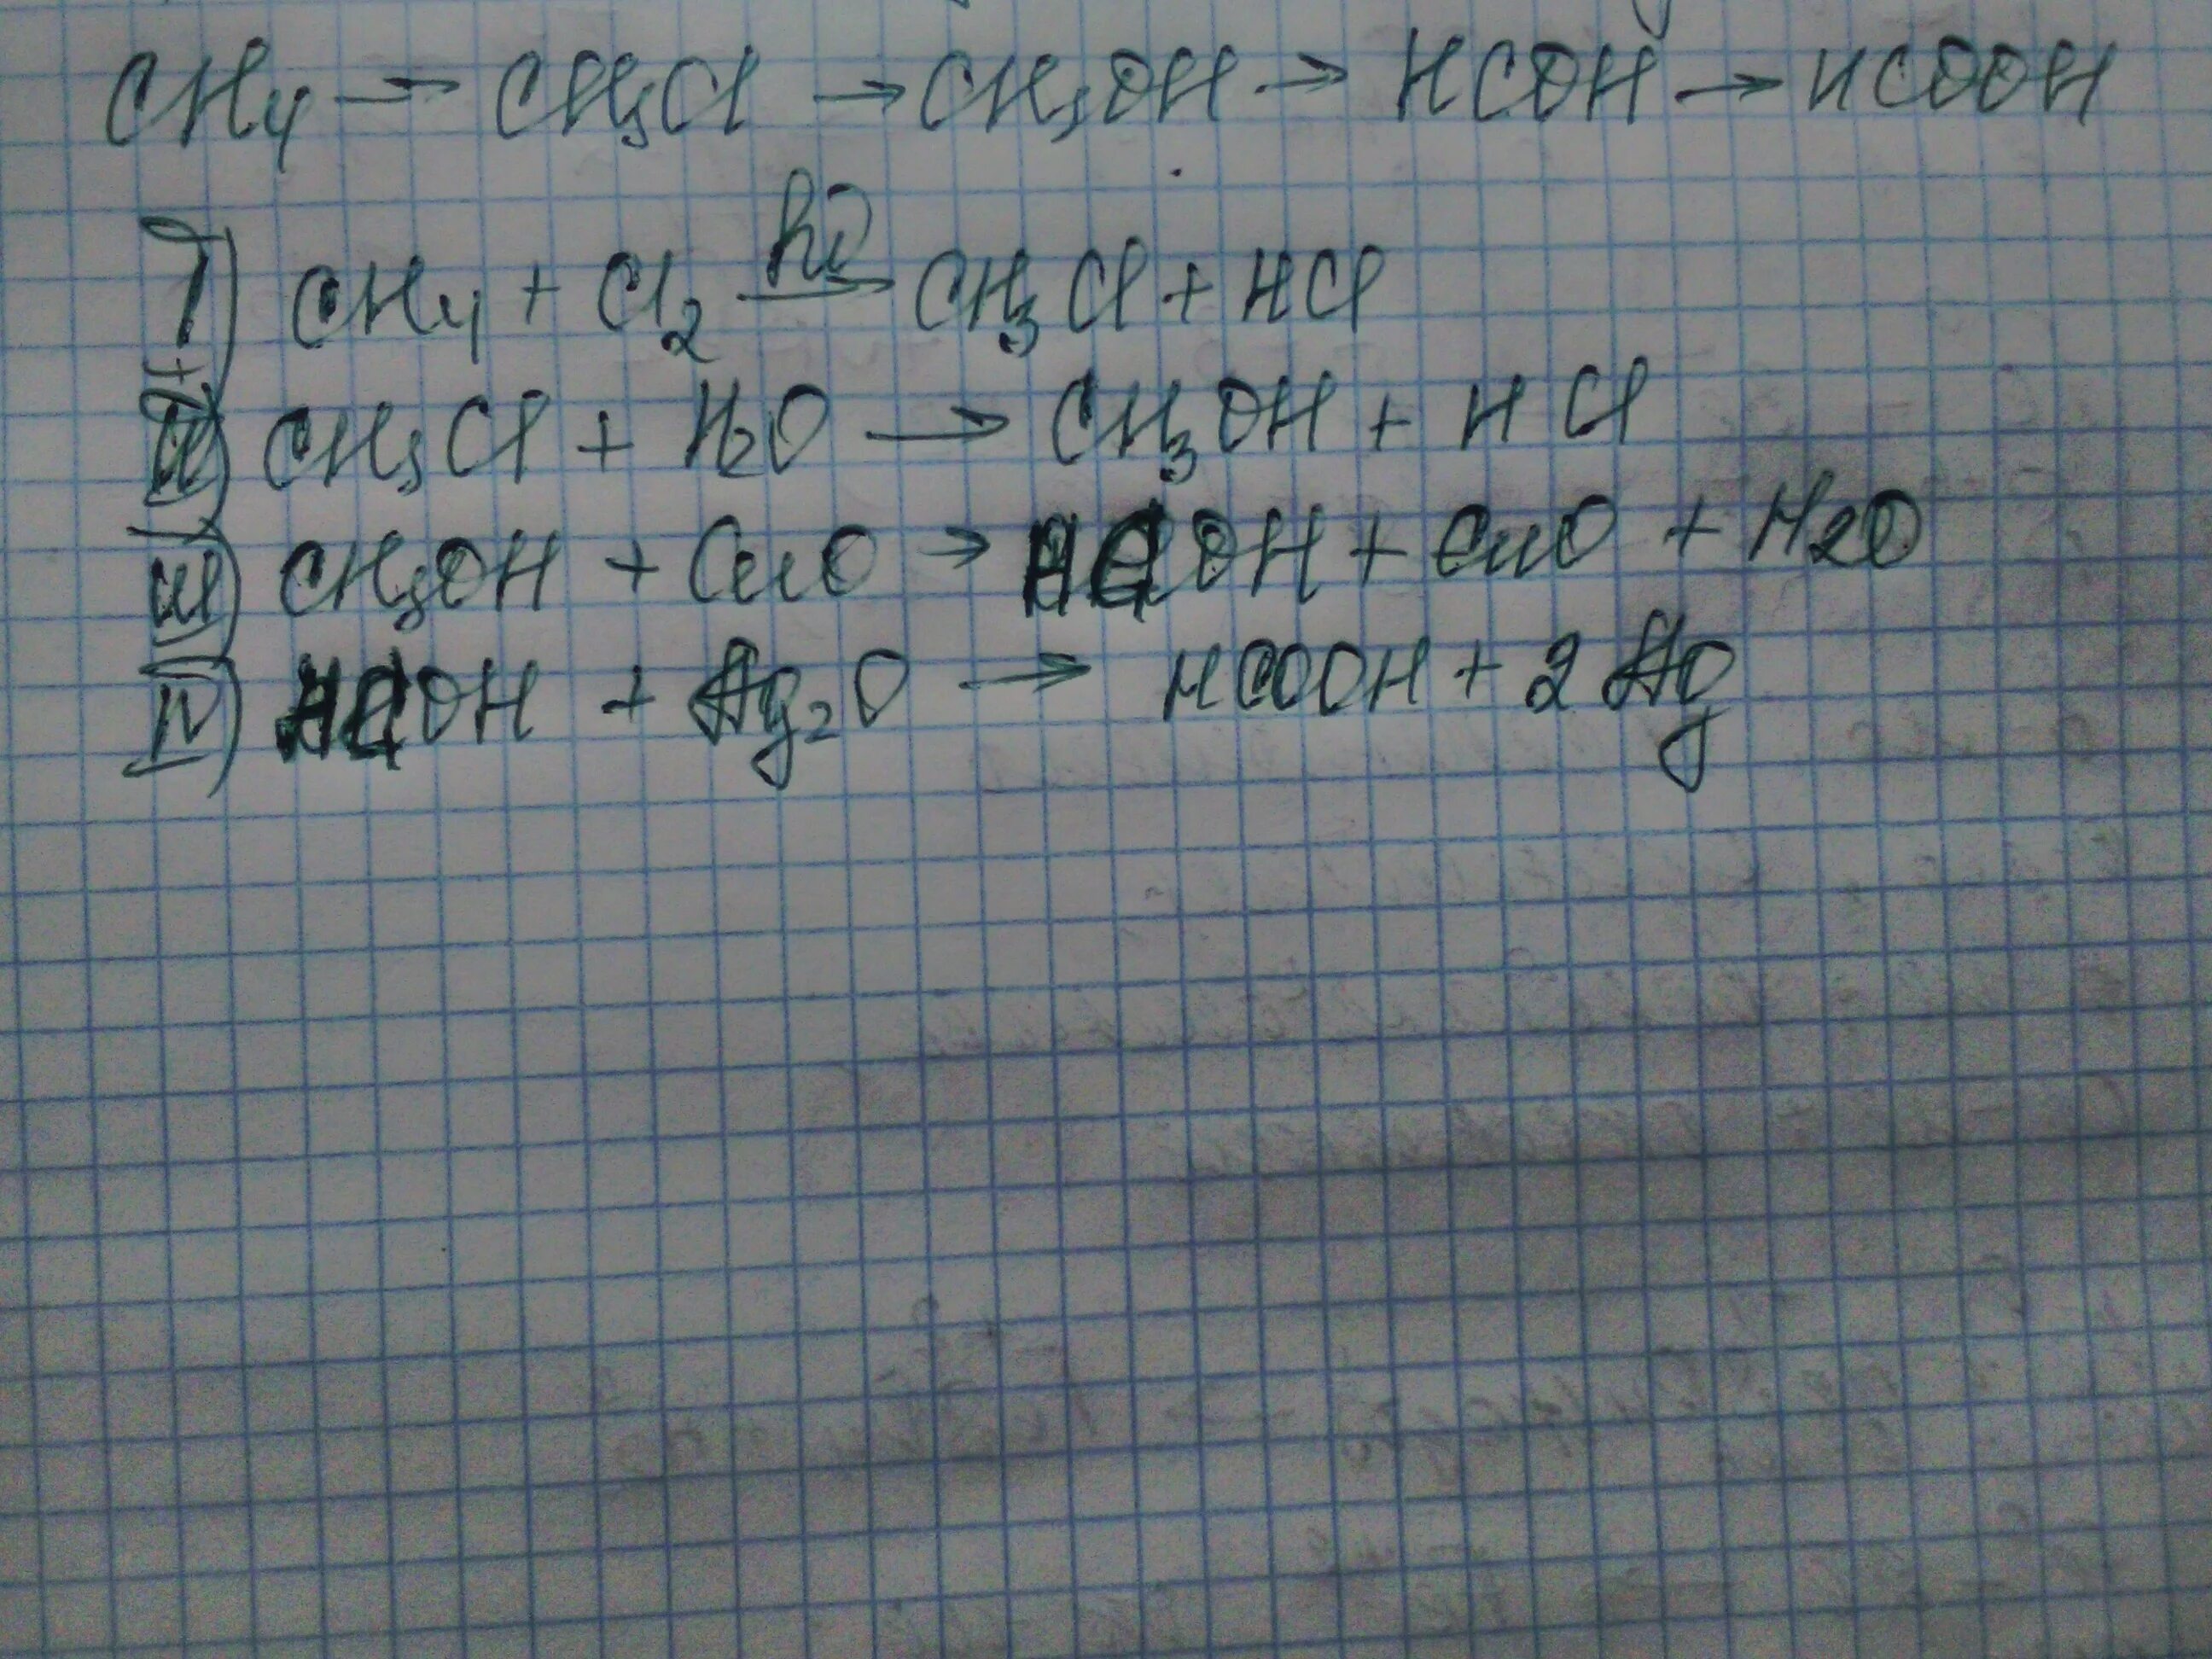 CH4 → CH3Cl → CH3OH → HCOH → HCOOH
I) CH4 + Cl2 hν→ CH3Cl + HCl
II) CH3Cl + H2O → CH3OH + HCl
III) CH3OH + CuO → HCOH + CuO + H2O
IV) HCOH + Ag2O → HCOOH + 2Ag